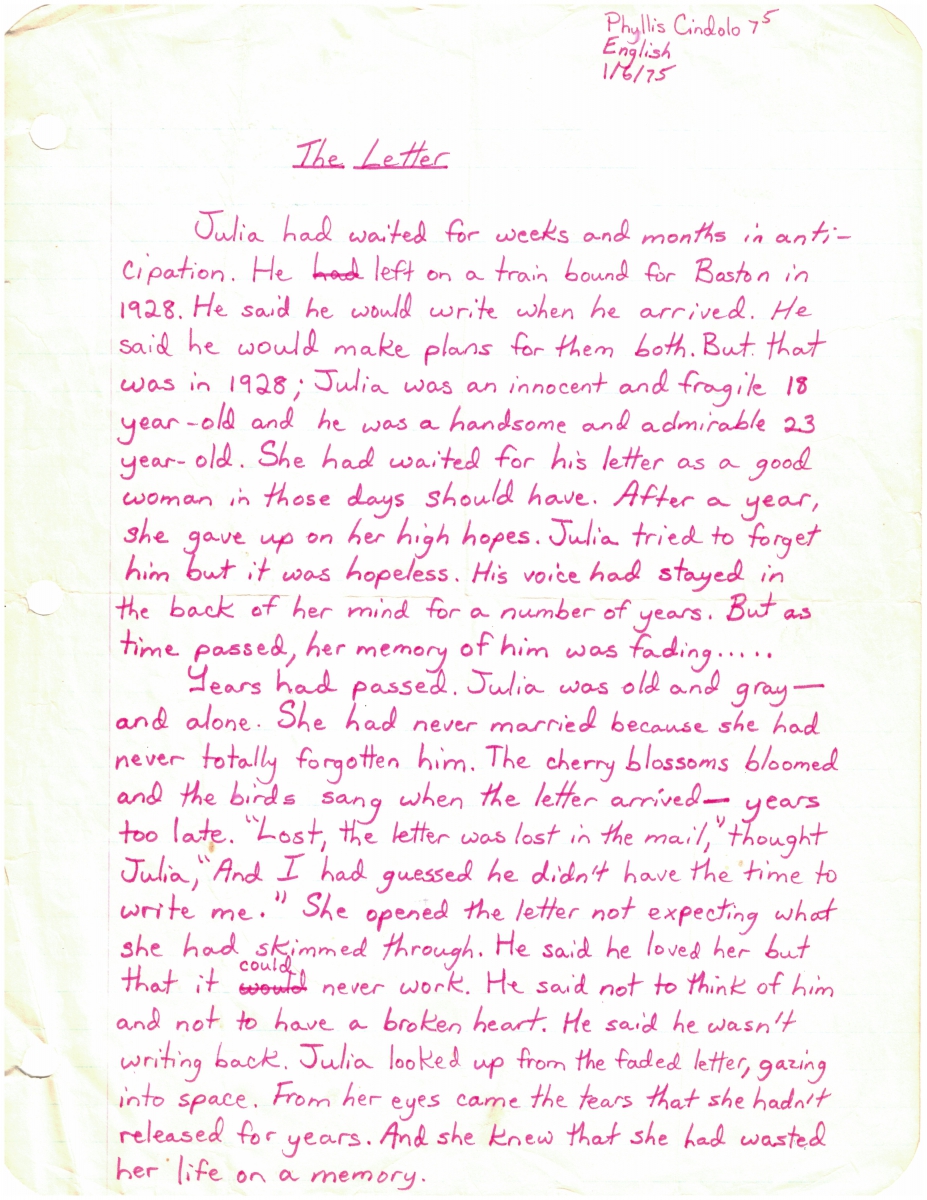 Phyllis Cindolo 7⁵
English
1/6/75
The Letter
Julia had waited for weeks and months in anti-
cipation. He had left on a train bound for Boston in
1928. He said he would write when he arrived. He
said he would make plans for them both. But that
was in 1928; Julia was an innocent and fragile 18
year-old and he was a handsome and admirable 23
year-old. She had waited for his letter as a good
woman in those days should have. After a year,
she gave up on her high hopes. Julia tried to forget
him but it was hopeless. His voice had stayed in
the back of her mind for a number of years. But as
time passed, her memory of him was fading.....
Years had passed. Julia was old and gray—
and alone. She had never married because she had
never totally forgotten him. The cherry blossoms bloomed
and the birds sang when the letter arrived— years
too late. "Lost, the letter was lost in the mail," thought
Julia, "And I had guessed he didn't have the time to
write me." She opened the letter not expecting what
she had skimmed through. He said he loved her but
that it would could never work. He said not to think of him
and not to have a broken heart. He said he wasn't
writing back. Julia looked up from the faded letter, gazing
into space. From her eyes came the tears that she hadn't
released for years. And she knew that she had wasted
her life on a memory.